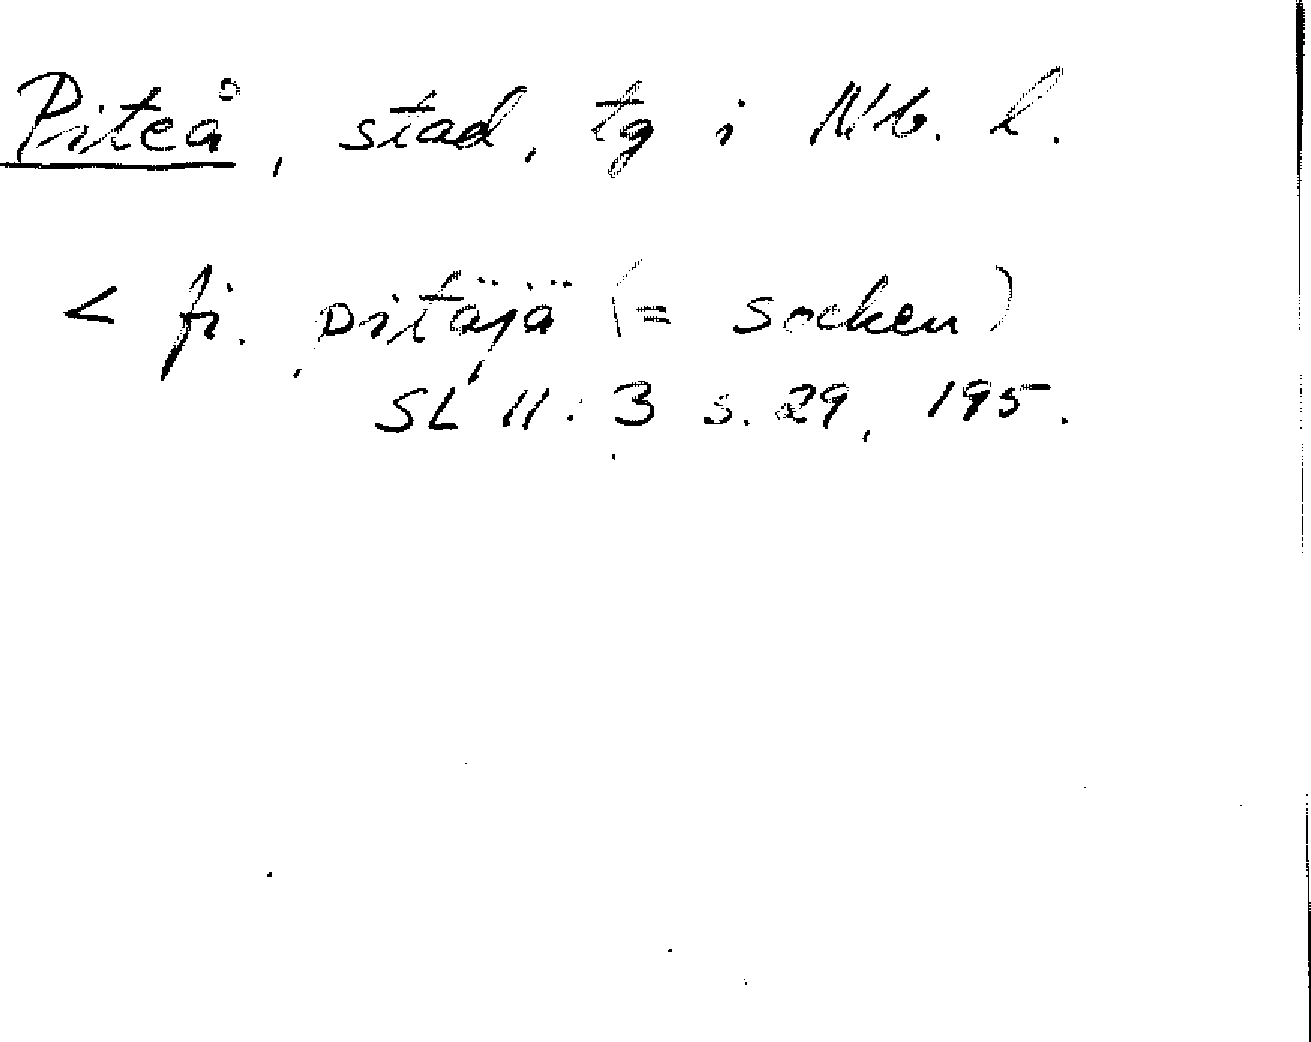 Piteå, stad, tg i Nb. l.
< fi. pitäjä (= socken)
SL 11:3 s. 29, 195.